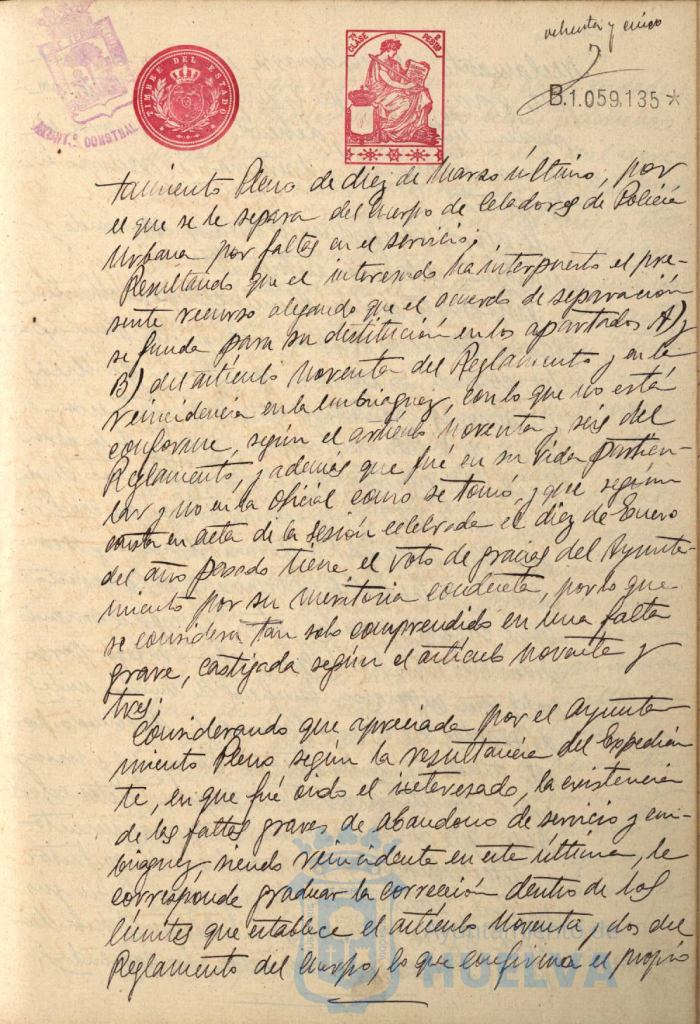 ochenta y cinco
TIMBRE DEL ESTADO
CLASE 8ª
PESETAS
B.1.059.135*
AYUNTº CONSTNAL
tamiento Pleno de diez de Marzo último, por
el que se le separa del Cuerpo de Celadores de Policía
Urbana por faltas en el servicio;
Resultando que el interesado ha interpuesto el pre-
sente recurso alegando que el acuerdo de separación
se funda para su destitución en los apartados A) y
B) del artículo noventa del Reglamento y en la
reincidencia en la embriaguez, con lo que no está
conforme, según el artículo noventa y seis del
Reglamento, y además que fué en su vida particu-
lar y no en la oficial como se tomó, y que según
consta en acta de la sesión celebrada el diez de Enero
del año pasado tiene el voto de gracias del Ayunta-
miento por su meritoria conducta, por lo que
se considera tan solo comprendido en una falta
grave, castigada según el artículo noventa y
tres;
Considerando que apreciada por el Ayunta
miento Pleno según la resultancia del Expedien
te, en que fué oido el interesado, la existencia
de las faltas graves de abandono de servicio y em-
briaguez, siendo reincidente en esta última, le
corresponde graduar la corrección dentro de los
límites que establece el artículo noventa y dos del
Reglamento del Cuerpo, lo que confirma el propio
Ayuntamiento de
HUELVA